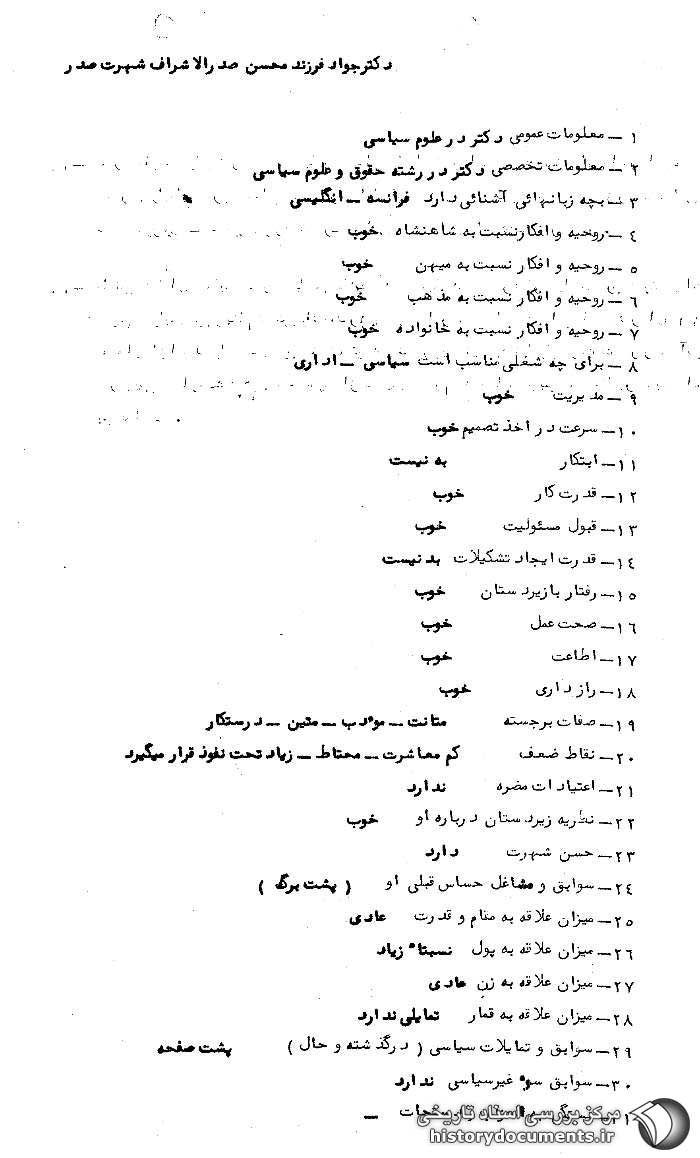 دکترجواد فرزند محسن صدرالاشراف شهرت صدر
۱ – معلومات عمومی دکتر در علوم سیاسی
۲ – معلومات تخصصی دکتر در رشته حقوق و علوم سیاسی
۳ – بچه زبانهائی آشنائی دارد فرانسه – انگلیسی
٤ – روحیه و افکار نسبت به شاهنشاه خوب
٥ – روحیه و افکار نسبت به میهن خوب
٦ – روحیه و افکار نسبت به مذهب خوب
۷ – روحیه و افکار نسبت به خانواده خوب
۸ – برای چه شغلی مناسب است سیاسی – اداری
۹ – مدیریت خوب
۱۰ – سرعت در اخذ تصمیم خوب
۱۱ – ابتکار به نیست
۱۲ – قدرت کار خوب
۱۳ – قبول مسئولیت خوب
۱٤ – قدرت ایجاد تشکیلات بد نیست
۱٥ – رفتار با زیردستان خوب
۱٦ – صحت عمل خوب
۱۷ – اطاعت خوب
۱۸ – رازداری خوب
۱۹ – صفات برجسته متانت – مودب – متین – درستکار
۲۰ – نقاط ضعف کم معاشرت – محتاط – زیاد تحت نفوذ قرار میگیرد
۲۱ – اعتیادات مضره ندارد
۲۲ – نظریه زیردستان درباره او خوب
۲۳ – حسن شهرت دارد
۲٤ – سوابق و مشاغل حساس قبلی او ( پشت برگ )
۲٥ – میزان علاقه به مقام و قدرت عادی
۲٦ – میزان علاقه به پول نسبتاً زیاد
۲۷ – میزان علاقه به زن عادی
۲۸ – میزان علاقه به قمار تمایلی ندارد
۲۹ – سوابق و تمایلات سیاسی ( درگذشته و حال ) پشت صفحه
۳۰ – سوابق سوء غیرسیاسی ندارد
مرکز بررسی اسناد تاریخی
historydocuments.ir